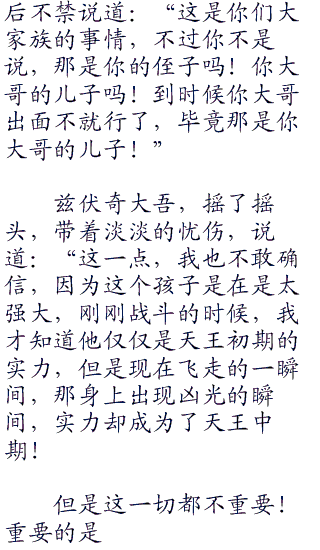 后不禁说道：“这是你们大
家族的事情，不过你不是
说，那是你的侄子吗！你大
哥的儿子吗！到时候你大哥
出面不就行了，毕竟那是你
大哥的儿子！”
兹伏奇大吾，摇了摇
头，带着淡淡的忧伤，说
道：“这一点，我也不敢确
信，因为这个孩子是在是太
强大，刚刚战斗的时候，我
才知道他仅仅是天王初期的
实力，但是现在飞走的一瞬
间，那身上出现凶光的瞬
间，实力却成为了天王中
期！
但是这一切都不重要！
重要的是